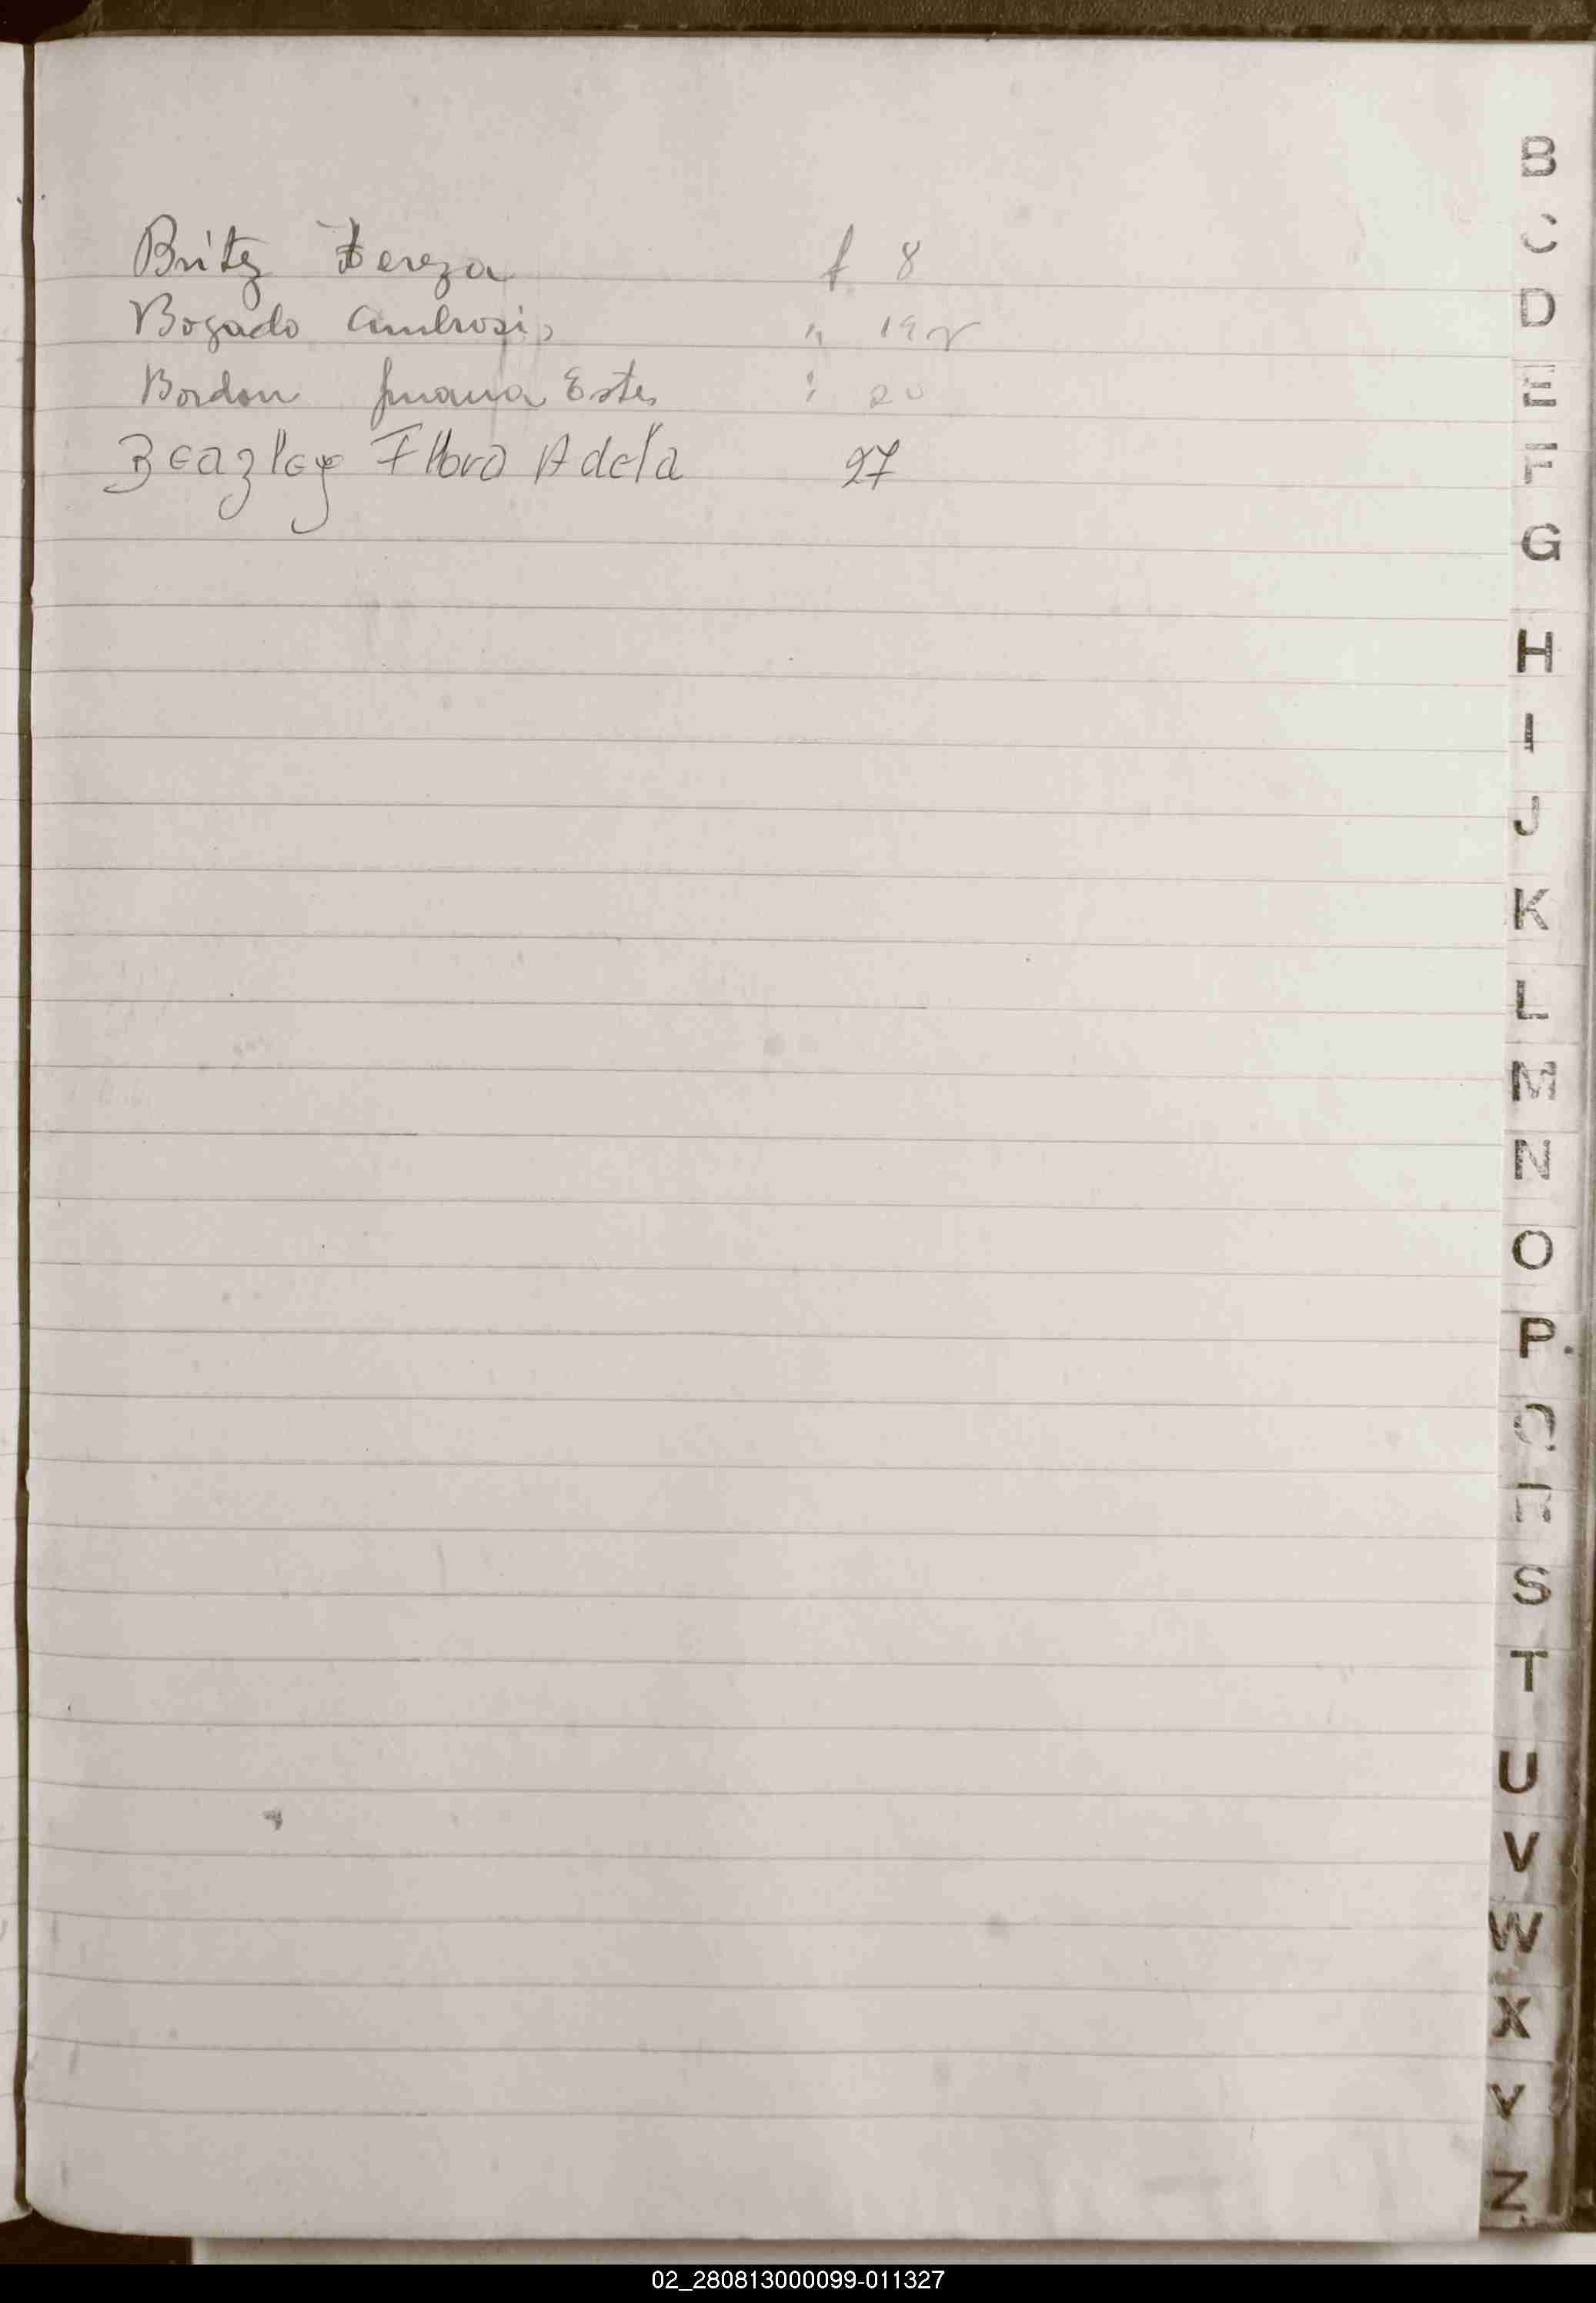 Britez Tereza f 8
Bogado Ambrosio " 19
Bordon Juana Este " 20
Beazley Flora Adela 27
B
C
D
E
F
G
H
I
J
K
L
M
N
O
P
Q
R
S
T
U
V
W
X
Y
Z
02_280813000099-011327